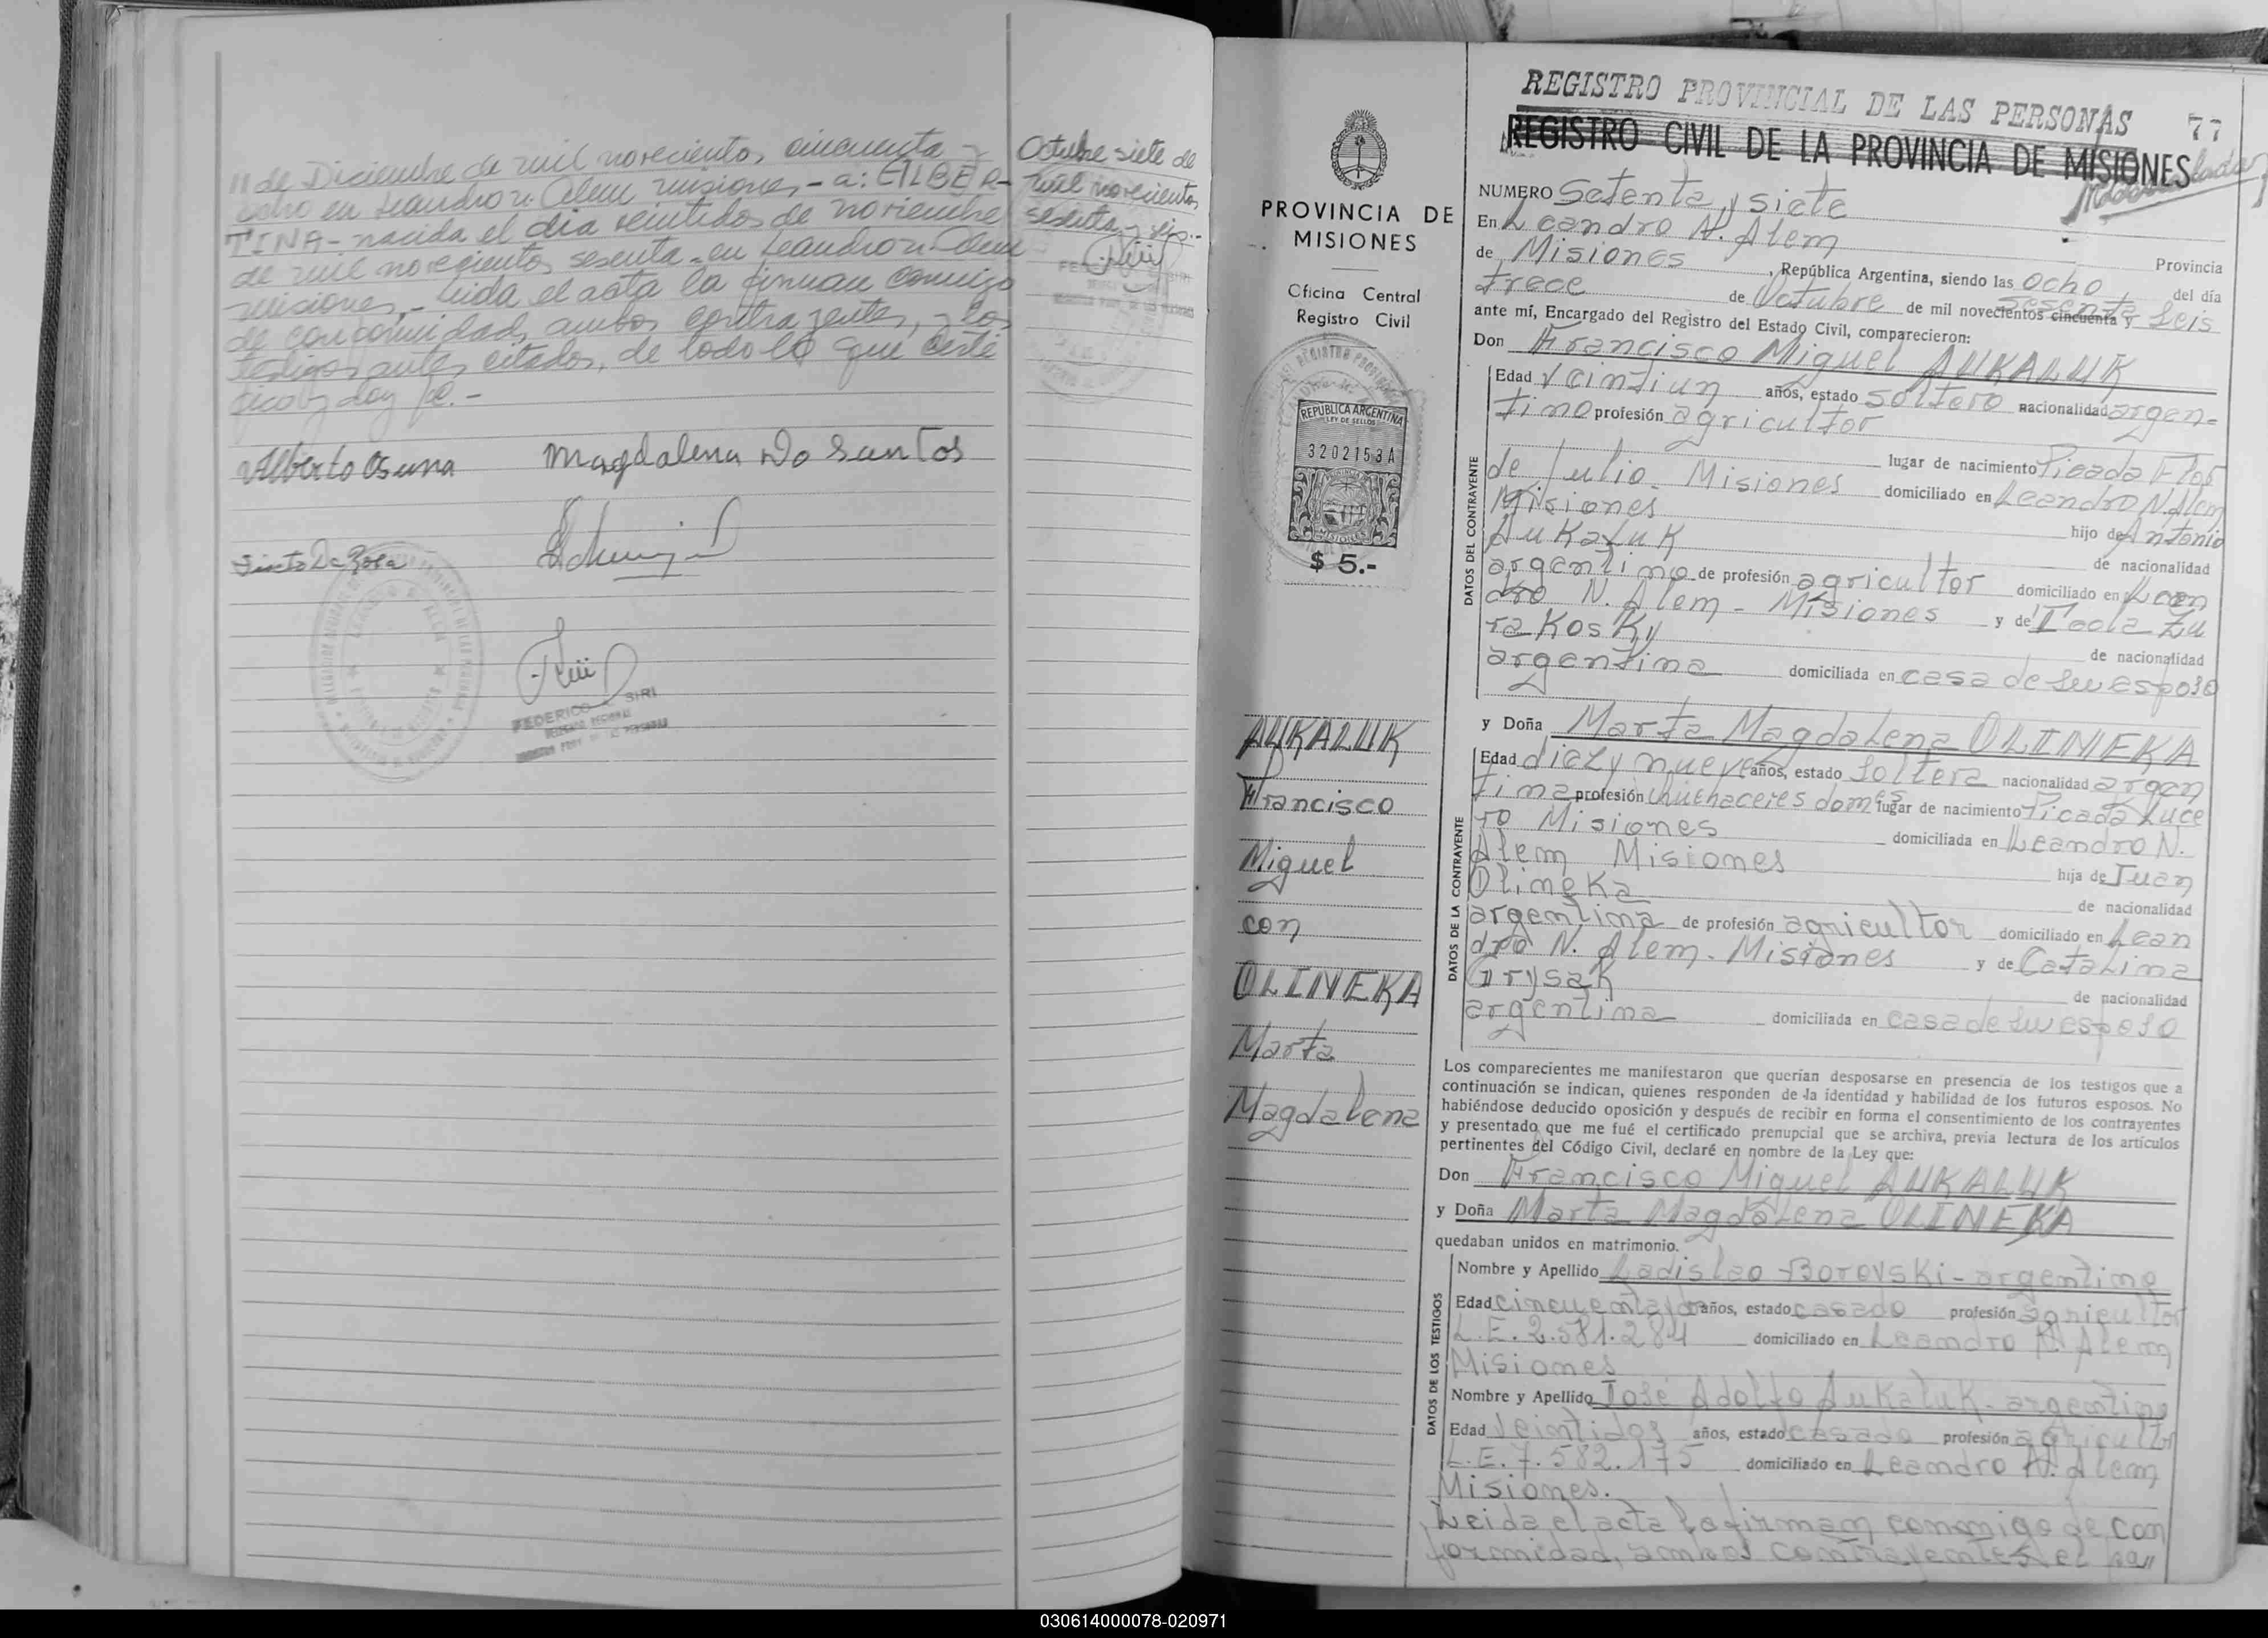 11 de Diciembre de mil novecientos cincuenta y
ocho en Leandro N. Alem misiones, - a: EILBER-
TINA - nacida el dia veintidos de noviembre
de mil novecientos sesenta - en Leandro N. Alem
misiones, - Leida el acta la firman conmigo
de conformidad, ambos contrayentes, y los
testigos antes citados, de todo lo que certi
fico y doy fé. -
Alberto Osuna
Magdalena Do Santos
Da Rosa
FEDERICO SIRI
Octubre siete de
mil novecientos
sesenta y seis.-
PROVINCIA DE
MISIONES
Oficina Central
Registro Civil
REPUBLICA ARGENTINA
LEY DE SELLOS
3202153A
$ 5.-
AUKALUK
Francisco
Miguel
con
OLINEKA
Marta
Magdalena
REGISTRO PROVINCIAL DE LAS PERSONAS
77
REGISTRO CIVIL DE LA PROVINCIA DE MISIONES
NUMERO Setenta y siete
En Leandro N. Alem Provincia
de Misiones, República Argentina, siendo las ocho del día
trece de Octubre de mil novecientos cincuenta y sesenta seis
ante mí, Encargado del Registro del Estado Civil, comparecieron:
Don Francisco Miguel AUKALUK
DATOS DEL CONTRAYENTE
Edad Veintiun años, estado soltero nacionalidad argen-
tino profesión agricultor
lugar de nacimiento Picada Flor
de Julio. Misiones domiciliado en Leandro N. Alem
Misiones hijo de Antonio
Aukaluk de nacionalidad
argentino de profesión agricultor domiciliado en Lean
dro N. Alem - Misiones y de Teola Zu
rakosky de nacionalidad
argentina domiciliada en casa de su esposo
y Doña Marta Magdalena OLINEKA
DATOS DE LA CONTRAYENTE
Edad diez y nueve años, estado soltera nacionalidad argen
tina profesión quehaceres domes lugar de nacimiento Picada Luce
ro Misiones domiciliada en Leandro N.
Alem Misiones hija de Juan
Olineka de nacionalidad
argentina de profesión agricultor domiciliado en Lean
dro N. Alem - Misiones y de Catalina
Grysak de nacionalidad
argentina domiciliada en casa de su esposo
Los comparecientes me manifestaron que querían desposarse en presencia de los testigos que a
continuación se indican, quienes responden de la identidad y habilidad de los futuros esposos. No
habiéndose deducido oposición y después de recibir en forma el consentimiento de los contrayentes
y presentado que me fué el certificado prenupcial que se archiva, previa lectura de los artículos
pertinentes del Código Civil, declaré en nombre de la Ley que:
Don Francisco Miguel AUKALUK
y Doña Marta Magdalena OLINEKA
quedaban unidos en matrimonio.
DATOS DE LOS TESTIGOS
Nombre y Apellido Ladislao Borovski - argentino
Edad cincuenta y dos años, estado casado profesión agricultor
L.E. 2.581.284 domiciliado en Leandro N. Alem
Misiones
Nombre y Apellido José Adolfo Aukaluk - argentino
Edad veintidos años, estado casado profesión agricultor
L.E. 7.582.175 domiciliado en Leandro N. Alem
Misiones.
Leida el acta la firman conmigo de con
formidad, ambos contrayentes, el pa"
030614000078-020971